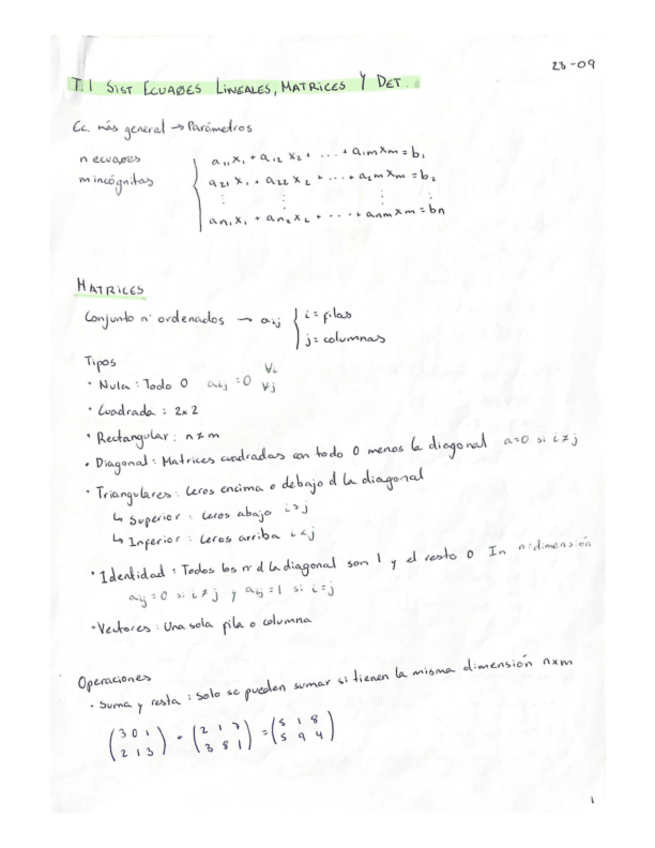 28-09
T.1 SIST ECUAØES LINEALES, MATRICES Y DET.
Ec. más general → Parámetros
n ecuaøes
m incógnitas
a₁₁x₁ + a₁₂ x₂ + ... + a₁mxm = b₁
a₂₁ x₁ + a₂₂ x₂ + ... + a₂m xm = b₂
⋮ ⋮ ⋮
an₁ x₁ + an₂ x₂ + ... + anm xm = bn
MATRICES
Conjunto nº ordenados → aij { i = filas
j = columnas
Tipos
• Nula : Todo 0 aij = 0 ∀i ∀j
• Cuadrada : 2x2
• Rectangular : n ≠ m
• Diagonal : Matrices cuadradas con todo 0 menos la diagonal a=0 si i≠j
• Triangulares : Ceros encima o debajo d la diagonal
↳ Superior : ceros abajo i>j
↳ Inferior : Ceros arriba i<j
• Identidad : Todos los nº d la diagonal son 1 y el resto 0 In n:dimensión
aij = 0 si i≠j y aij = 1 si i=j
• Vectores : Una sola fila o columna
Operaciones
• Suma y resta : Solo se pueden sumar si tienen la misma dimensión nxm
(3 0 1) + (2 1 7) = (5 1 8)
(2 1 3) (3 8 1) (5 9 4)
1